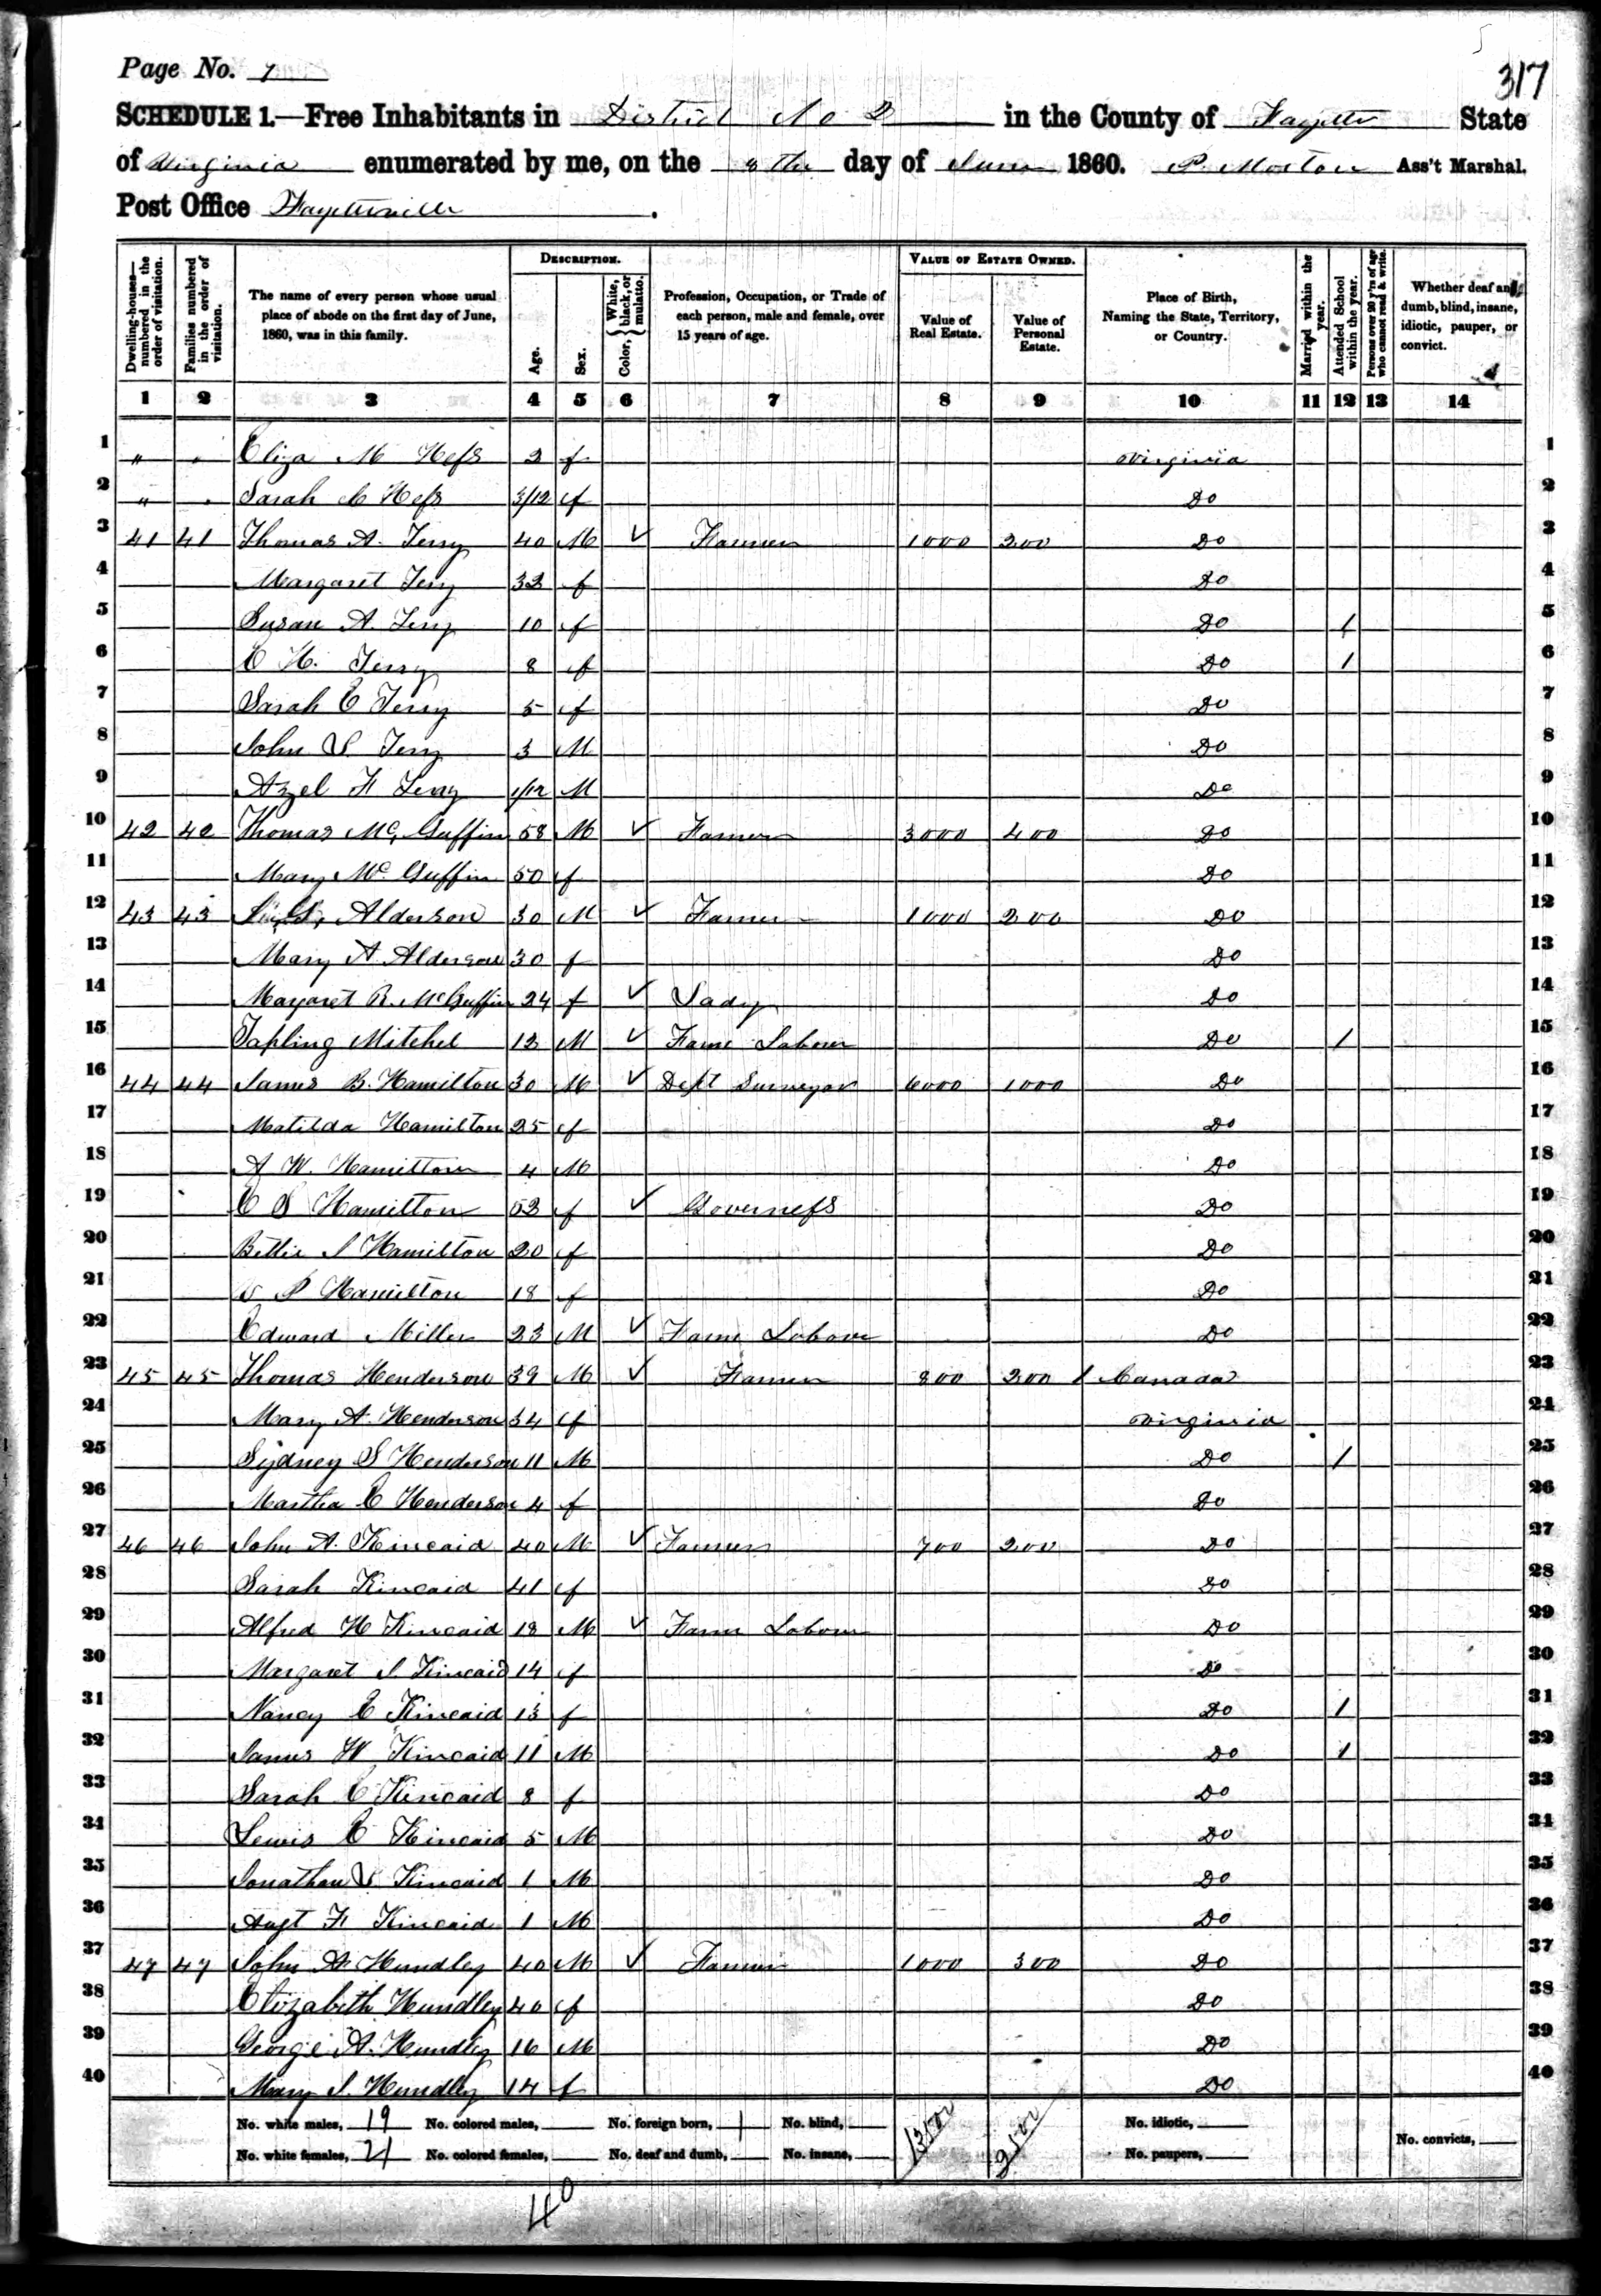 5
Page No. 7
317
SCHEDULE 1.—Free Inhabitants in District No 2 in the County of Fayette State
of Virginia enumerated by me, on the 8th day of June 1860. P. Morton Ass't Marshal.
Post Office Fayetteville.
Dwelling-houses—numbered in the order of visitation. Families numbered in the order of visitation. The name of every person whose usual place of abode on the first day of June, 1860, was in this family. DESCRIPTION. Age. Sex. Color, {White, black, or mulatto. Profession, Occupation, or Trade of each person, male and female, over 15 years of age. VALUE OF ESTATE OWNED. Value of Real Estate. Value of Personal Estate. Place of Birth, Naming the State, Territory, or Country. Married within the year. Attended School within the year. Persons over 20 y'rs of age who cannot read & write. Whether deaf and dumb, blind, insane, idiotic, pauper, or convict.
1 2 3 4 5 6 7 8 9 10 11 12 13 14
1 " " Eliza M Hefs 2 f Virginia 1
2 " " Sarah C Hefs 3/12 f Do 2
3 41 41 Thomas A. Terry 40 M ✓ Farmer 1000 200 Do 3
4 Margaret Terry 32 f Do 4
5 Susan A. Terry 10 f Do 1 5
6 C H. Terry 8 f Do 1 6
7 Sarah E Terry 5 f Do 7
8 John S. Terry 3 M Do 8
9 Azel F Terry 1/12 M Do 9
10 42 42 Thomas Mc Guffin 58 M ✓ Farmer 3000 400 Do 10
11 Mary Mc Guffin 50 f Do 11
12 43 43 Alderson 30 M ✓ Farmer 1000 200 Do 12
13 Mary A Alderson 30 f Do 13
14 Margaret R. McGuffin 24 f ✓ Lady Do 14
15 Tapling Mitchel 12 M ✓ Farm Labour Do 1 15
16 44 44 James B. Hamilton 30 M ✓ Dept Surveyor 6000 1000 Do 16
17 Matilda Hamilton 25 f Do 17
18 A W. Hamilton 4 M Do 18
19 C S Hamilton 52 f ✓ Governefs Do 19
20 Bettie S Hamilton 20 f Do 20
21 P Hamilton 18 f Do 21
22 Edward Miller 23 M ✓ Farm Labour Do 22
23 45 45 Thomas Henderson 39 M ✓ Farmer 800 200 / Canada 23
24 Mary A. Henderson 34 f Virginia 24
25 Sydney S Henderson 11 M Do 1 25
26 Martha E Henderson 4 f Do 26
27 46 46 John A. Kincaid 40 M ✓ Farmer 700 200 Do 27
28 Sarah Kincaid 41 f Do 28
29 Alfred H Kincaid 18 M ✓ Farm Labour Do 29
30 Margaret J. Kincaid 14 f Do 30
31 Nancy E Kincaid 13 f Do 1 31
32 James W Kincaid 11 M Do 1 32
33 Sarah E Kincaid 8 f Do 33
34 Lewis C Kincaid 5 M Do 34
35 Jonathan S Kincaid 1 M Do 35
36 Augt F Kincaid 1 M Do 36
37 47 47 John A Hundley 40 M ✓ Farmer 1000 300 Do 37
38 Elizabeth Hundley 40 f Do 38
39 George A. Hundley 16 M Do 39
40 Mary J. Hundley 14 f Do 40
No. white males, 19 No. colored males, No. foreign born, 1 No. blind, 13500 2500 No. idiotic,
No. white females, 21 No. colored females, No. deaf and dumb, No. insane, No. paupers, No. convicts,
40